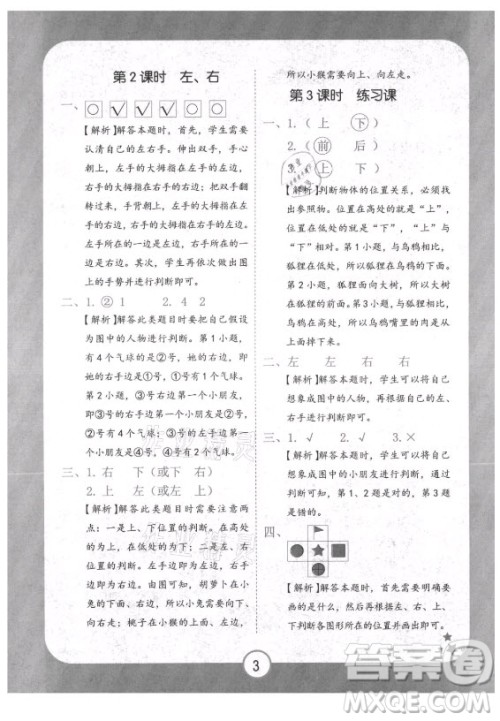 第2课时 左、右
一、○ ✓ ✓ ✓ ○ ○
【解析】解答本题时，首先，学生需要
认清自己的左右手。伸出双手，手心
朝上，左手的大拇指在左手的左边，
右手的大拇指在右边。把双手翻
转过来，手背朝上，左手的大拇指在
左手的右边，右手的大拇指在左边。
左手所在的一边是左边，右手所在
的一边是右边。其次，学生再依据图
上的手势并进行判断即可。
二、1.② 1 2.4 2
【解析】解答此类题目时要假设自己
为图中的人物进行判断。第1小题，
有4个气球的是②号小朋友，②号
的右手边是①号，①号有1个气球。
第2小题，从右手边起第一个小朋
友，即③号的右手边第一个小朋友是
②号有4个气球；②号的左手边第
一个小朋友是④号，④号有2个气球。
三、1.右 下（或下 右）
2.上 左（或左 上）
【解析】解答此类题目时需要注意两
点：一是上、下位置的判断。在高处
的是上，在低处的是下；二是左、右
位置的判断。左手边是左边，右手
边是右边。由图可知，胡萝卜在小
兔的下面，右边，所以小兔需要向
下、向右走；桃子在小猴的上面、左边，
所以小猴需要向上、向左走。
第3课时 练习课
一、1.（上 下）
2.（前 后）
3. 上 下
【解析】判断物体的位置关系，必须找
出参照物。位置在高处的就是“上”，
位置在低处的就是“下”，“上”是与
“下”相对的。第1小题，与乌鸦相比，
狐狸在低处，所以狐狸在乌鸦的下
面。第2小题，与狐狸相比，大树
在狐狸的前面，所以狐狸在大树的
后面。第3小题，肉从乌鸦嘴里的向
上面掉下来。
二、左 左 右 右
【解析】解答本题时，学生可以将自己
想象成图中的人物，然后根据自己的
左、右手进行判断即可。
三、1.√ 2.√ 3.×
【解析】解答本题时，学生可以将自己
想象成图中的小朋友进行左右的判
断。第1、2题是对的，第3题
是错的。
四、
【解析】解答本题时，要明确正确
地，然后根据左、右、上、
下判断各图形所在的位置即可。
3
答案圈
MXQE.COM